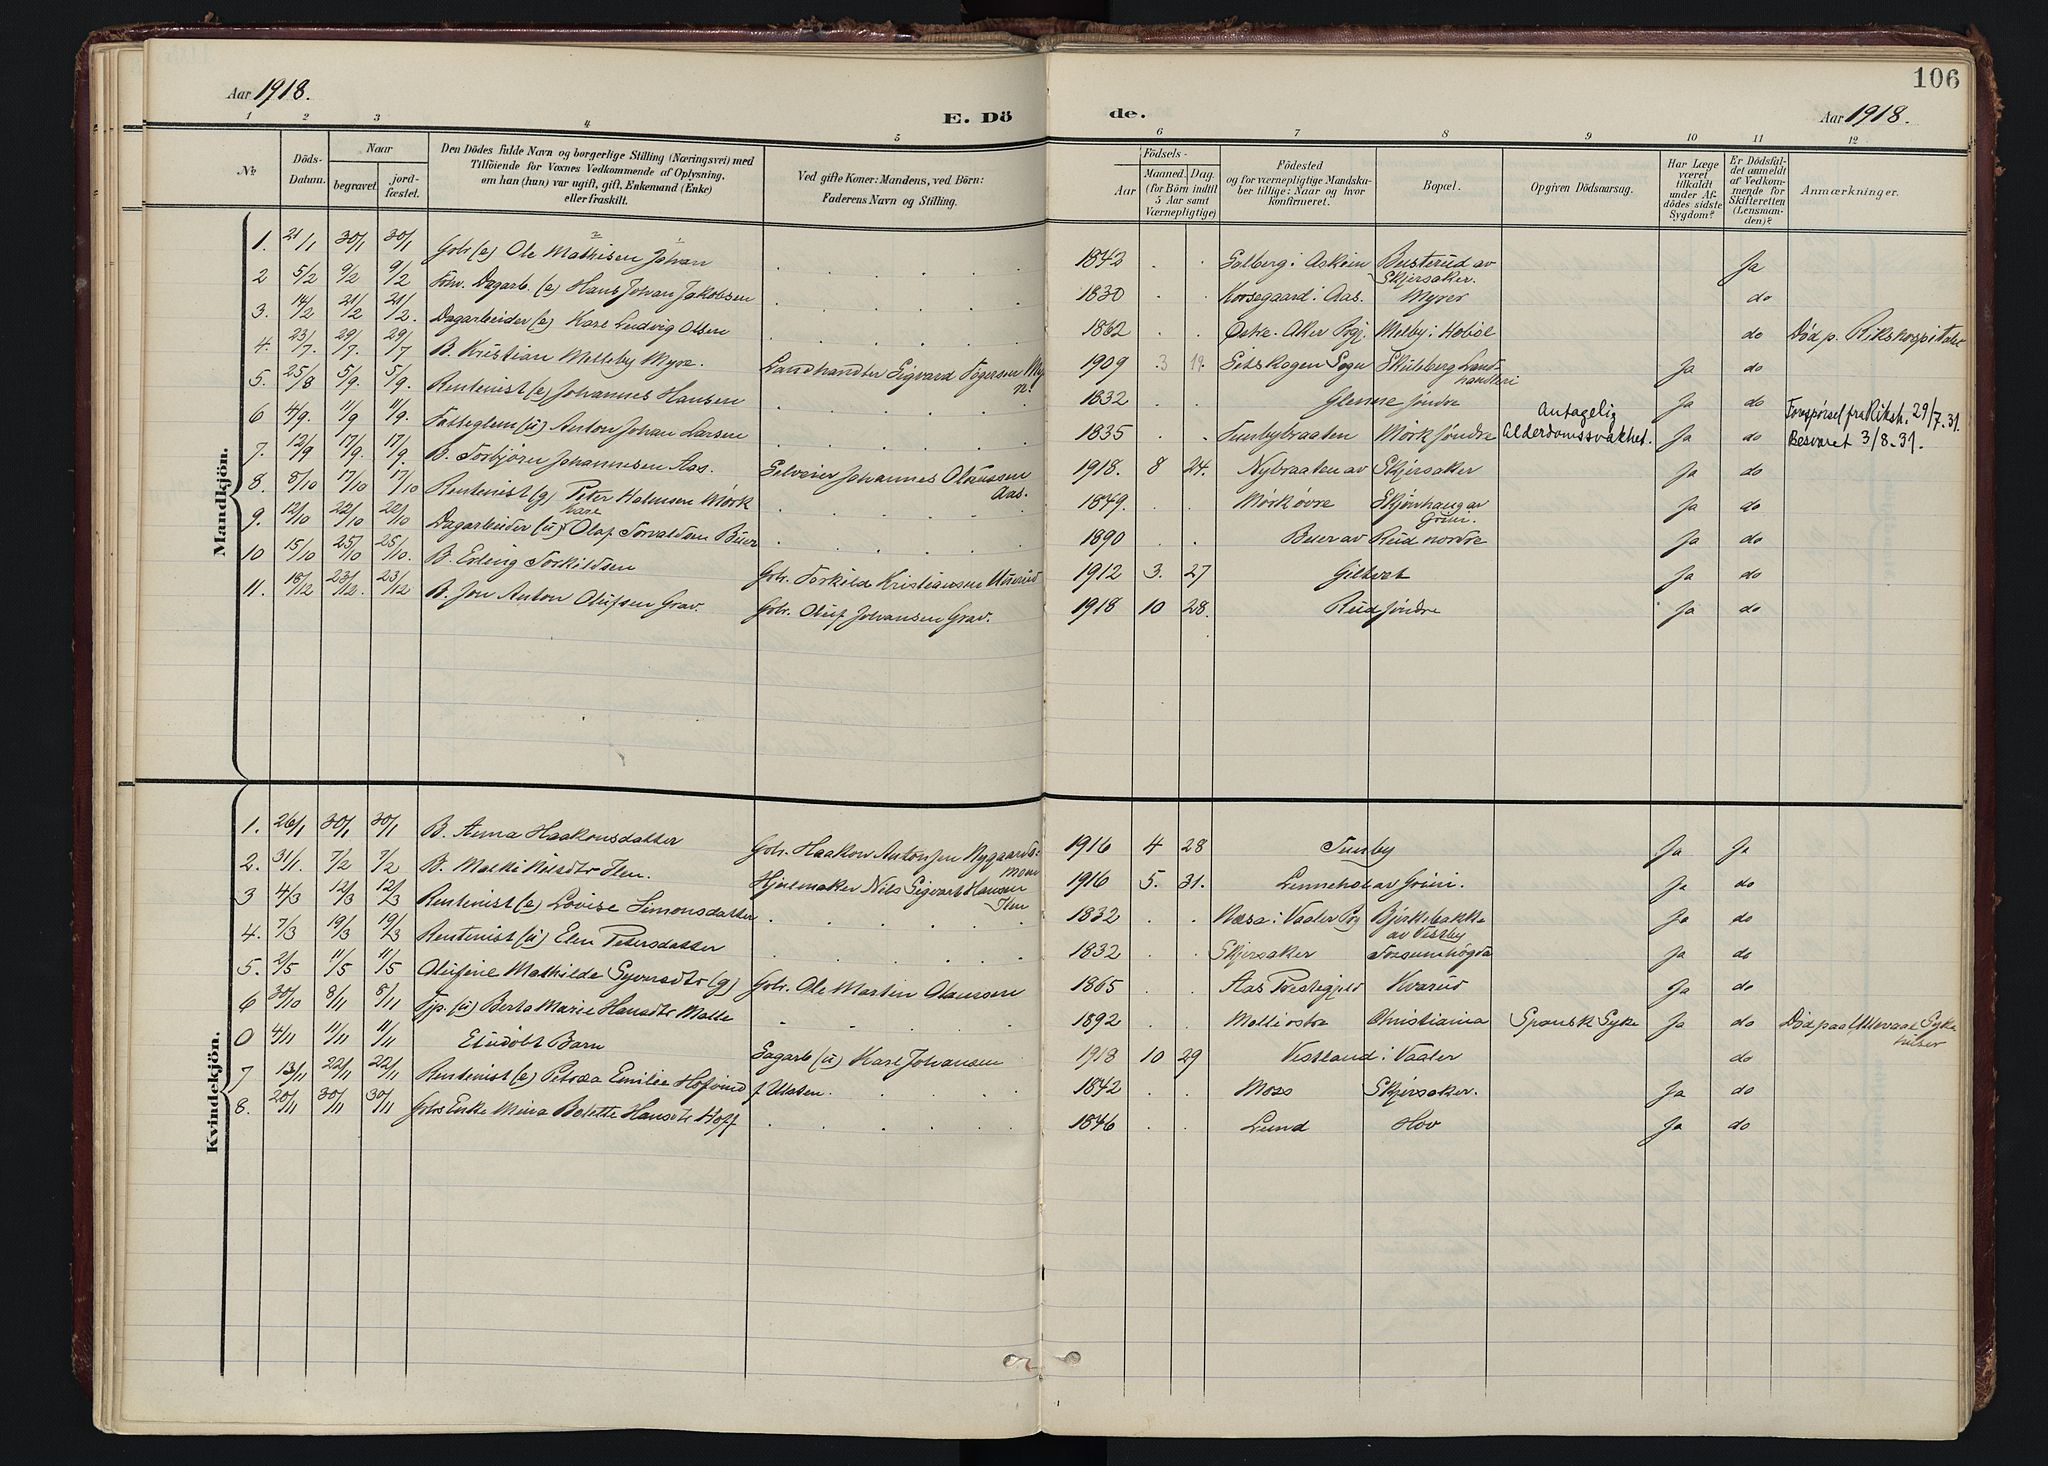 106
Aar 1918.
E. Döde.
Aar 1918.
1 2 3 4 5 6 7 8 9 10 11 12
No.
Döds-Datum.
Naar
begravet.
jordfæstet.
Den Dödes fulde Navn og borgerlige Stilling (Næringsvei) med
Tilföiende for Voxnes Vedkommende af Oplysning,
om han (hun) var ugift, gift, Enkemand (Enke)
eller fraskilt.
Ved gifte Koner: Mandens, ved Börn:
Faderens Navn og Stilling.
Födsels-
Aar
Maaned. Dag.
(for Börn indtil
5 Aar samt
Værnepligtige)
Födested
og for værnepligtige Mandska-
ber tillige: Naar og hvor
konfirmeret.
Bopæl.
Opgiven Dödsaarsag.
Har Læge
været
tilkaldt
under Af-
dödes sidste
Sygdom?
Er Dödsfal-
det anmeldt
af Vedkom-
mende for
Skifteretten
(Lensman-
den)?
Anmærkninger.
Mandkjön.
1. 21/1 30/1 30/1 Gbr. (e) Ole Mathisen Johan 1842 Solberg i Askim Busterud av Skjersaker. Ja
2 5/2 9/2 9/2 Dagarb. (e) Hans Johan Jakobsen 1830 Korsegaard i Aas. Myrer do
3. 14/2 21/2 21/2. Dagarbeider (e) Karl Ludvig Olsen 1862 Østre Aker Pgj. Melby i Hobøl do Død p. Rikshospitalet
4. 23/7. 29/7. 29/7 B. Kristian Melleby Myre. Landhandler Sigvard Torgersen 1909 3 19. Setskogen Sogn Skulsberg Landhandleri Ja do
5. 25/8 5/9. 5/9. Rentenist (e) Johannes Hansen 1832 Glenne søndre Ja do
6 4/9. 11/9 11/9. Fattiglem (u) Anton Johan Larsen 1835 Tunbybraaten Mørk søndre Antagelig Alderdomssvakhet. Ja do Forespørsel fra Riksh. 29/7.31. Besvaret 3/8-31.
7. 12/9 17/9. 17/9. B. Torbjørn Johannesen Aas. Selveier Johannes Olaussen Aas. 1918. 8 24. Nybraaten av Skjersaker Ja do
8. 8/10 17/10 17/10 Rentenist (g) Peter Halvorsen Mørk 1849. Mørk øvre Skjønhaug av Grini. Ja do
9. 12/10 22/10 22/10 Dagarbeider (u) Olaf Torvaldsen Buer 1890 Buer av Rud nordre Ja do
10 15/10 25/10 25/10. B. Erling Torkildsen Gbr. Torkild Kristiansen 1912 3. 27 Gilbert Ja do
11. 18/12 23/12. 23/12 B. Jon Anton Olufsen Grav. Gbr. Oluf Johansen Grav. 1918 10 28. Rud søndre Ja do
Kvindekjön.
1. 26/1 30/1 30/1 B. Anna Haakonsdatter Gbr. Haakon Antonsen Nygaard 1916 4 28 Tunby Ja Ja
2. 31/1. 7/2 7/2 B. Nilsdtr Hjulmaker Nils Sigvart Hansen 1916 5. 31. av Grini. Ja do
3 4/3 12/3 12/3 Rentenist (e) Lovise Simonsdatter 1832 Næsa i Vaaler Bjerkebakke av Vestby Ja do
4. 7/3 19/3 19/3 Rentenist (u) Elen Petersdatter 1832 Skjersaker Torsumhögda Ja do
5. 2/5 11/5 11/5 Olufine Mathilde Syversdtr (g) Gbr. Ole Martin Olaussen 1865 Aas Prestegjeld Kvarud Ja do
6 30/10 8/11 8/11 Tjp. (u) Berta Marie Hansdtr Molle 1892 Christiania Spansk Syke Ja do Død paa Ullevaal Sykehus
0 4/11 11/11 11/11 Eludöbt Barn (u) Karl Johansen 1918 10 29 Vestland i Vaaler do
7 13/11 22/11 22/11. Rentenist (e) Petræa Emilie Hofvind 1842 Moss Skjersaker. Ja do
8. 20/11 30/11 30/11 Gbrs Enke Mina Bolette Hansdtr Hoff 1846 Lund Hov Ja do